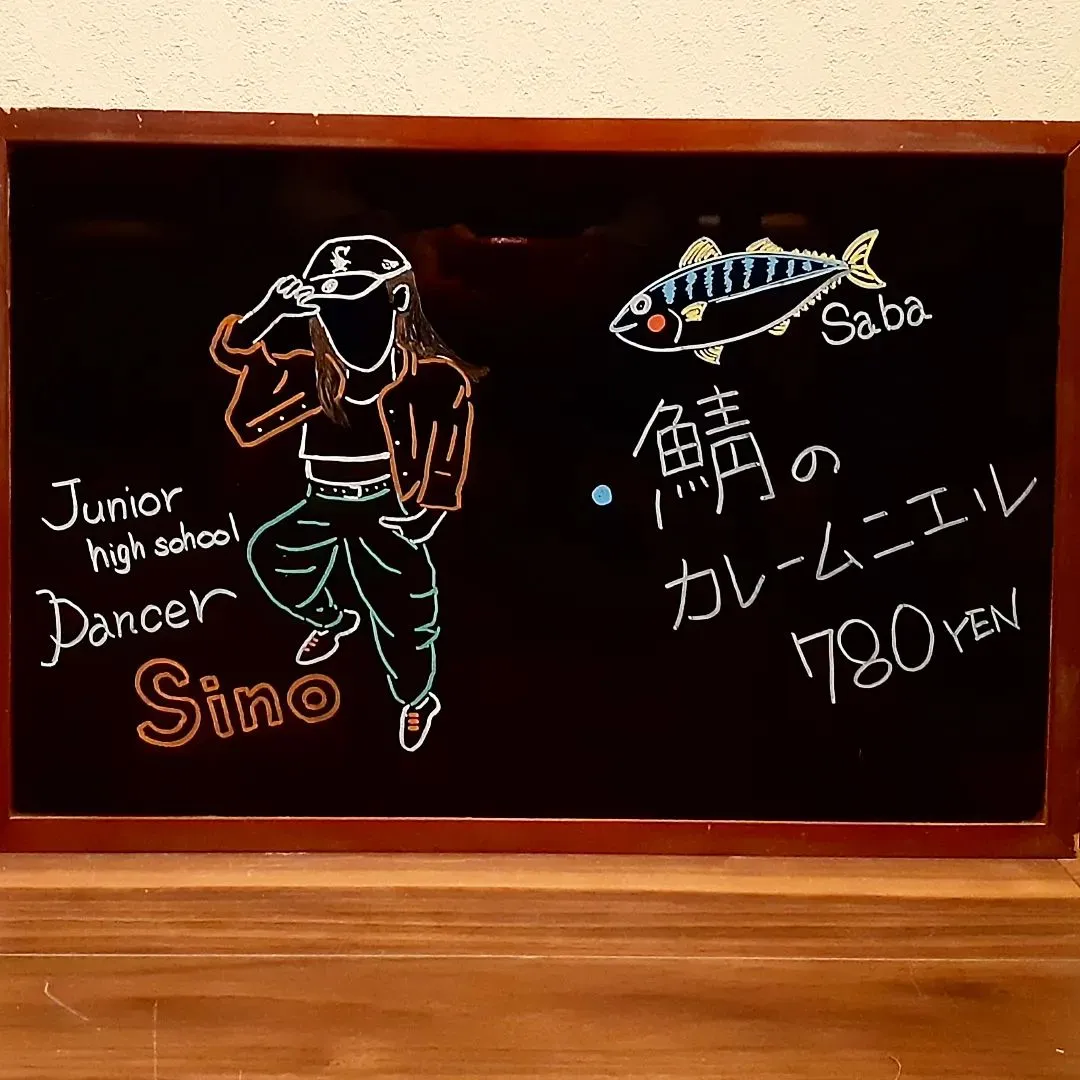 Junior
high school
Dancer
Sino
Saba
鯖の
カレームニエル
780YEN